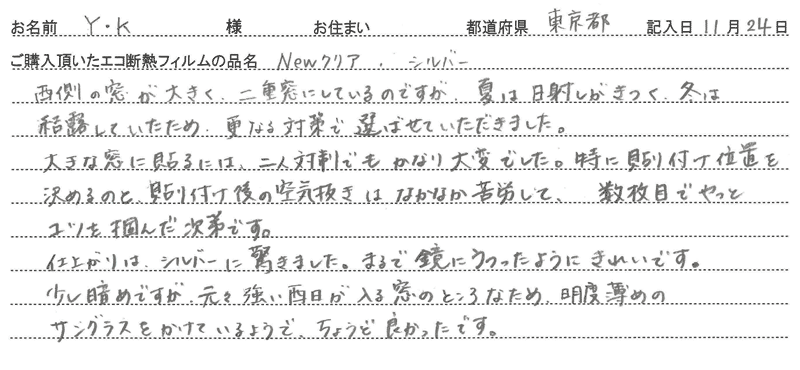 お名前 Y・K 様 お住まい 都道府県 東京都 記入日 11月24日
ご購入頂いたエコ断熱フィルムの品名 Newクリア 、 シルバー
西側の窓が大きく、二重窓にしているのですが、夏は日射しがきつく、冬は
結露していたため、更なる対策で選ばせていただきました。
大きな窓に貼るには、二人体制でもかなり大変でした。特に貼り付け位置を
決めるのと、貼り付け後の空気抜きはなかなか苦労して、 数枚目でやっと
コツを掴んだ次第です。
仕上がりは、シルバーに驚きました。まるで鏡にうつったようにきれいです。
少し暗めですが、元々強い西日が入る窓のところなため、明度薄めの
サングラスをかけているようで、ちょうど良かったです。